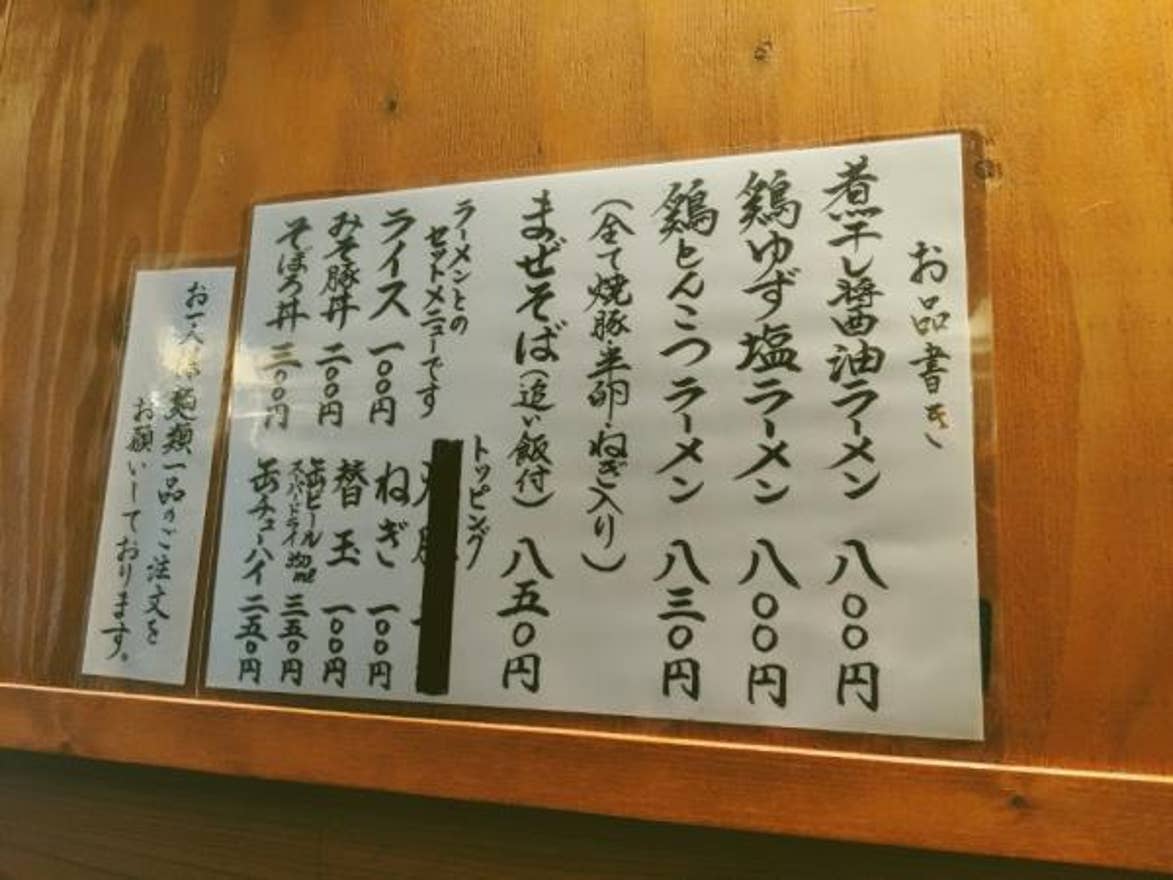 お品書き
煮干し醤油ラーメン 八〇〇円
鶏ゆず塩ラーメン 八〇〇円
鶏とんこつラーメン 八三〇円
(全て焼豚・半卵・ねぎ入り)
まぜそば(追い飯付) 八五〇円
ラーメンとの
セットメニューです
ライス 一〇〇円
みそ豚丼 二〇〇円
そぼろ丼 三〇〇円
トッピング
ねぎ 一〇〇円
替玉 一〇〇円
缶ビール
スーパードライ 350ml 三五〇円
缶チューハイ 二五〇円
お一人様麺類一品のご注文を
お願いしております。